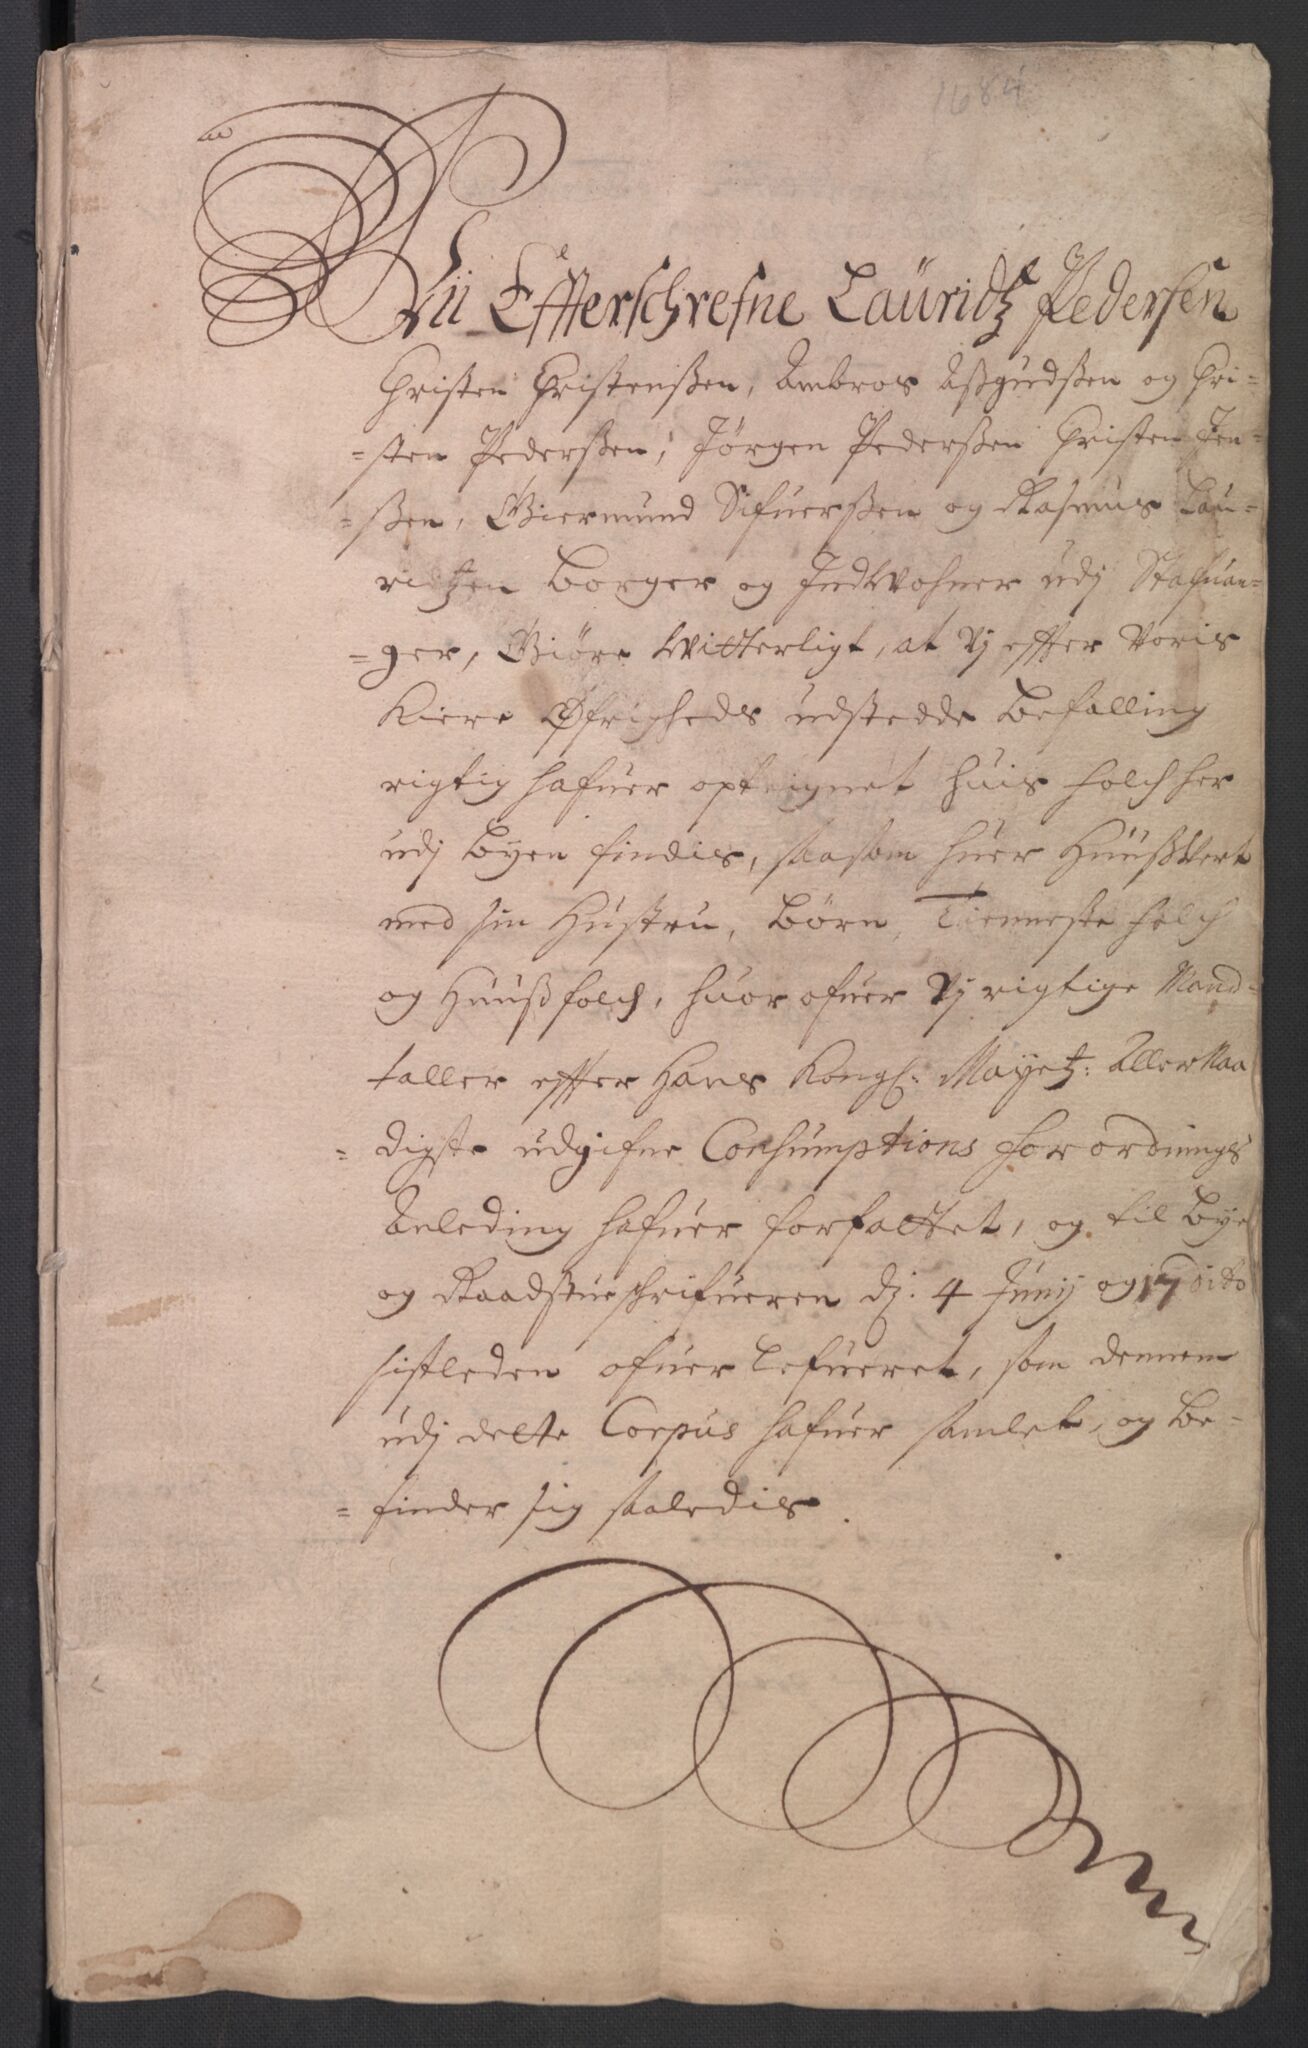 1684
Vii Effterschrefne Lauridtz Pedersen
Christen Christenßen, Ambros Aßgudßen og Chri=
=sten Pederßen, Jørgen Pederßen Christen Jen=
=ßen, Giermund Sifuerßen og Rasmus Lau=
ritzen Borger og Indwohner udj Stafuan=
=ger, Giøre Witterligt, at Vj effter Voris
Kiere Øfrigheds udstedde Befalling
rigtig hafuer opteignet huis folch her
udj Byen findis, saasom huer Huußwert
med sin Hustru, Børn, Tienneste folch
og Huußfolch, huor ofuer Vj rigtige Mand=
taller effter Hans Kongl: Mayetz: AllerNaa
= digste udgifne Consumptions forordnings
Anleding hafuer forfattet, og til Bye
og Raadstueschrifueren dj: 4 Junij og 17 dito
sistleden ofuer lefueret, som dennem
udj dette Corpus hafuer samlet, og Be=
= finder sig saaledis.